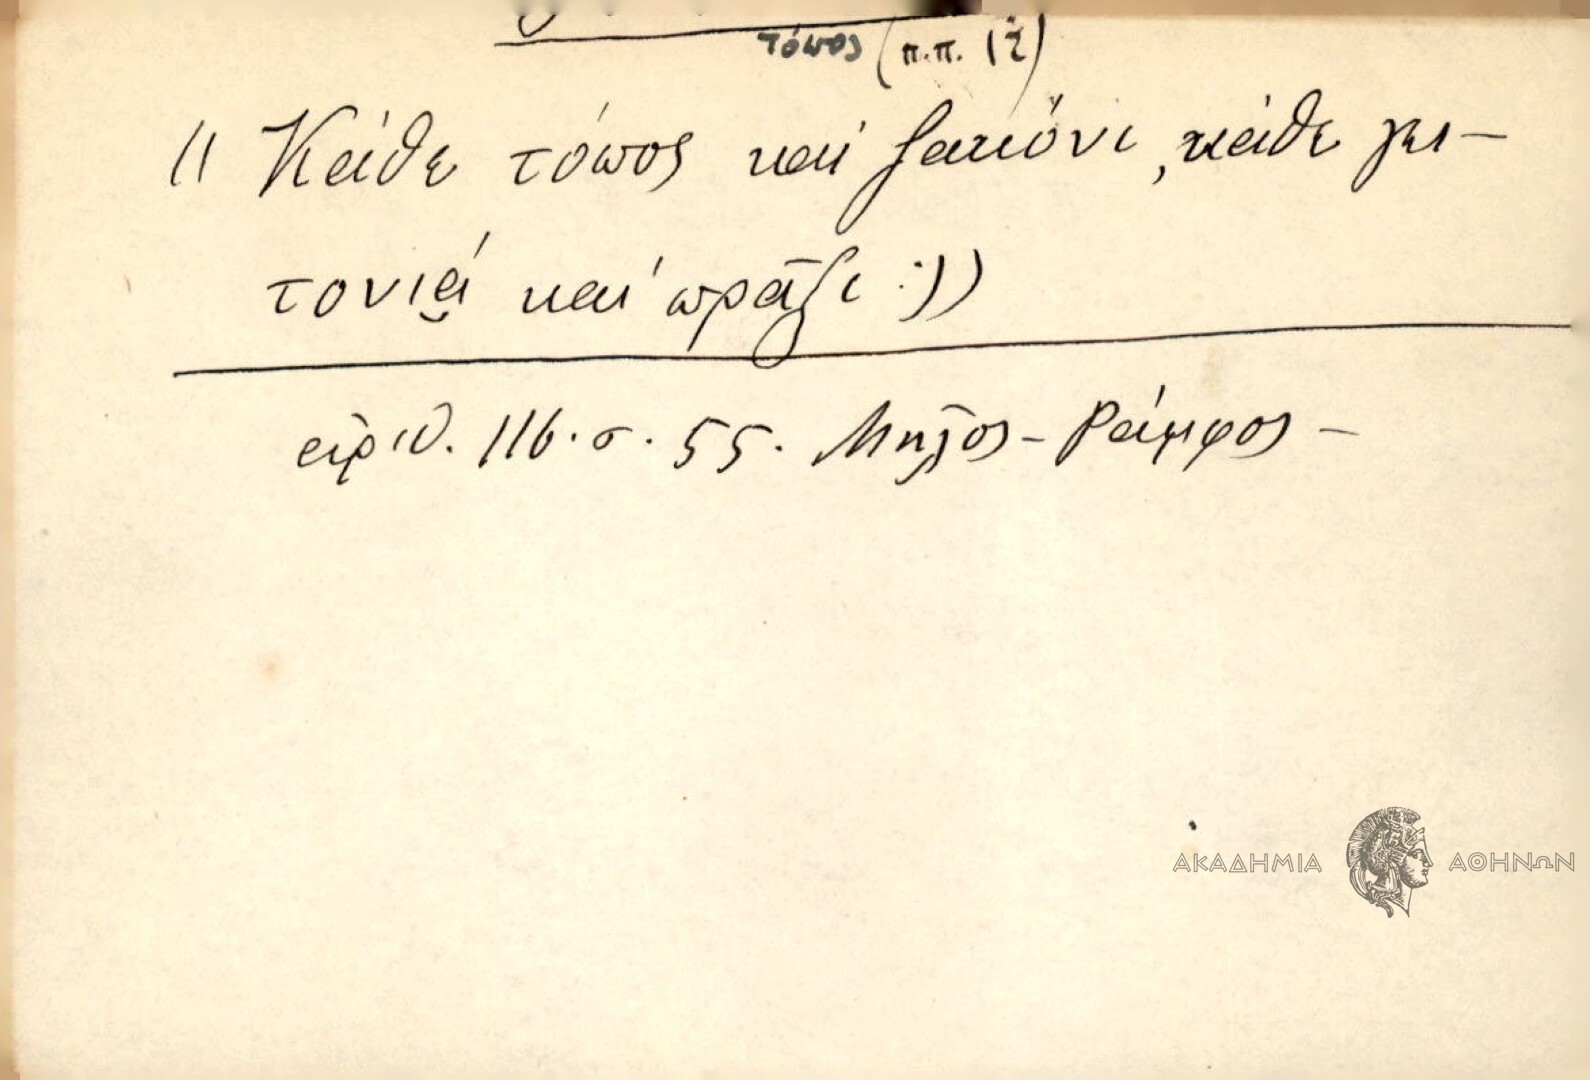 τόπος (π.π. 12)
(( Κάθε τόπος καί ζακόνι, κάθε γει-
τονιά καί πρᾶξι :))
ἀριθ. 116. σ. 55. Μῆλος - Ράμφος -
ΑΚΑΔΗΜΙΑ ΑΘΗΝΩΝ